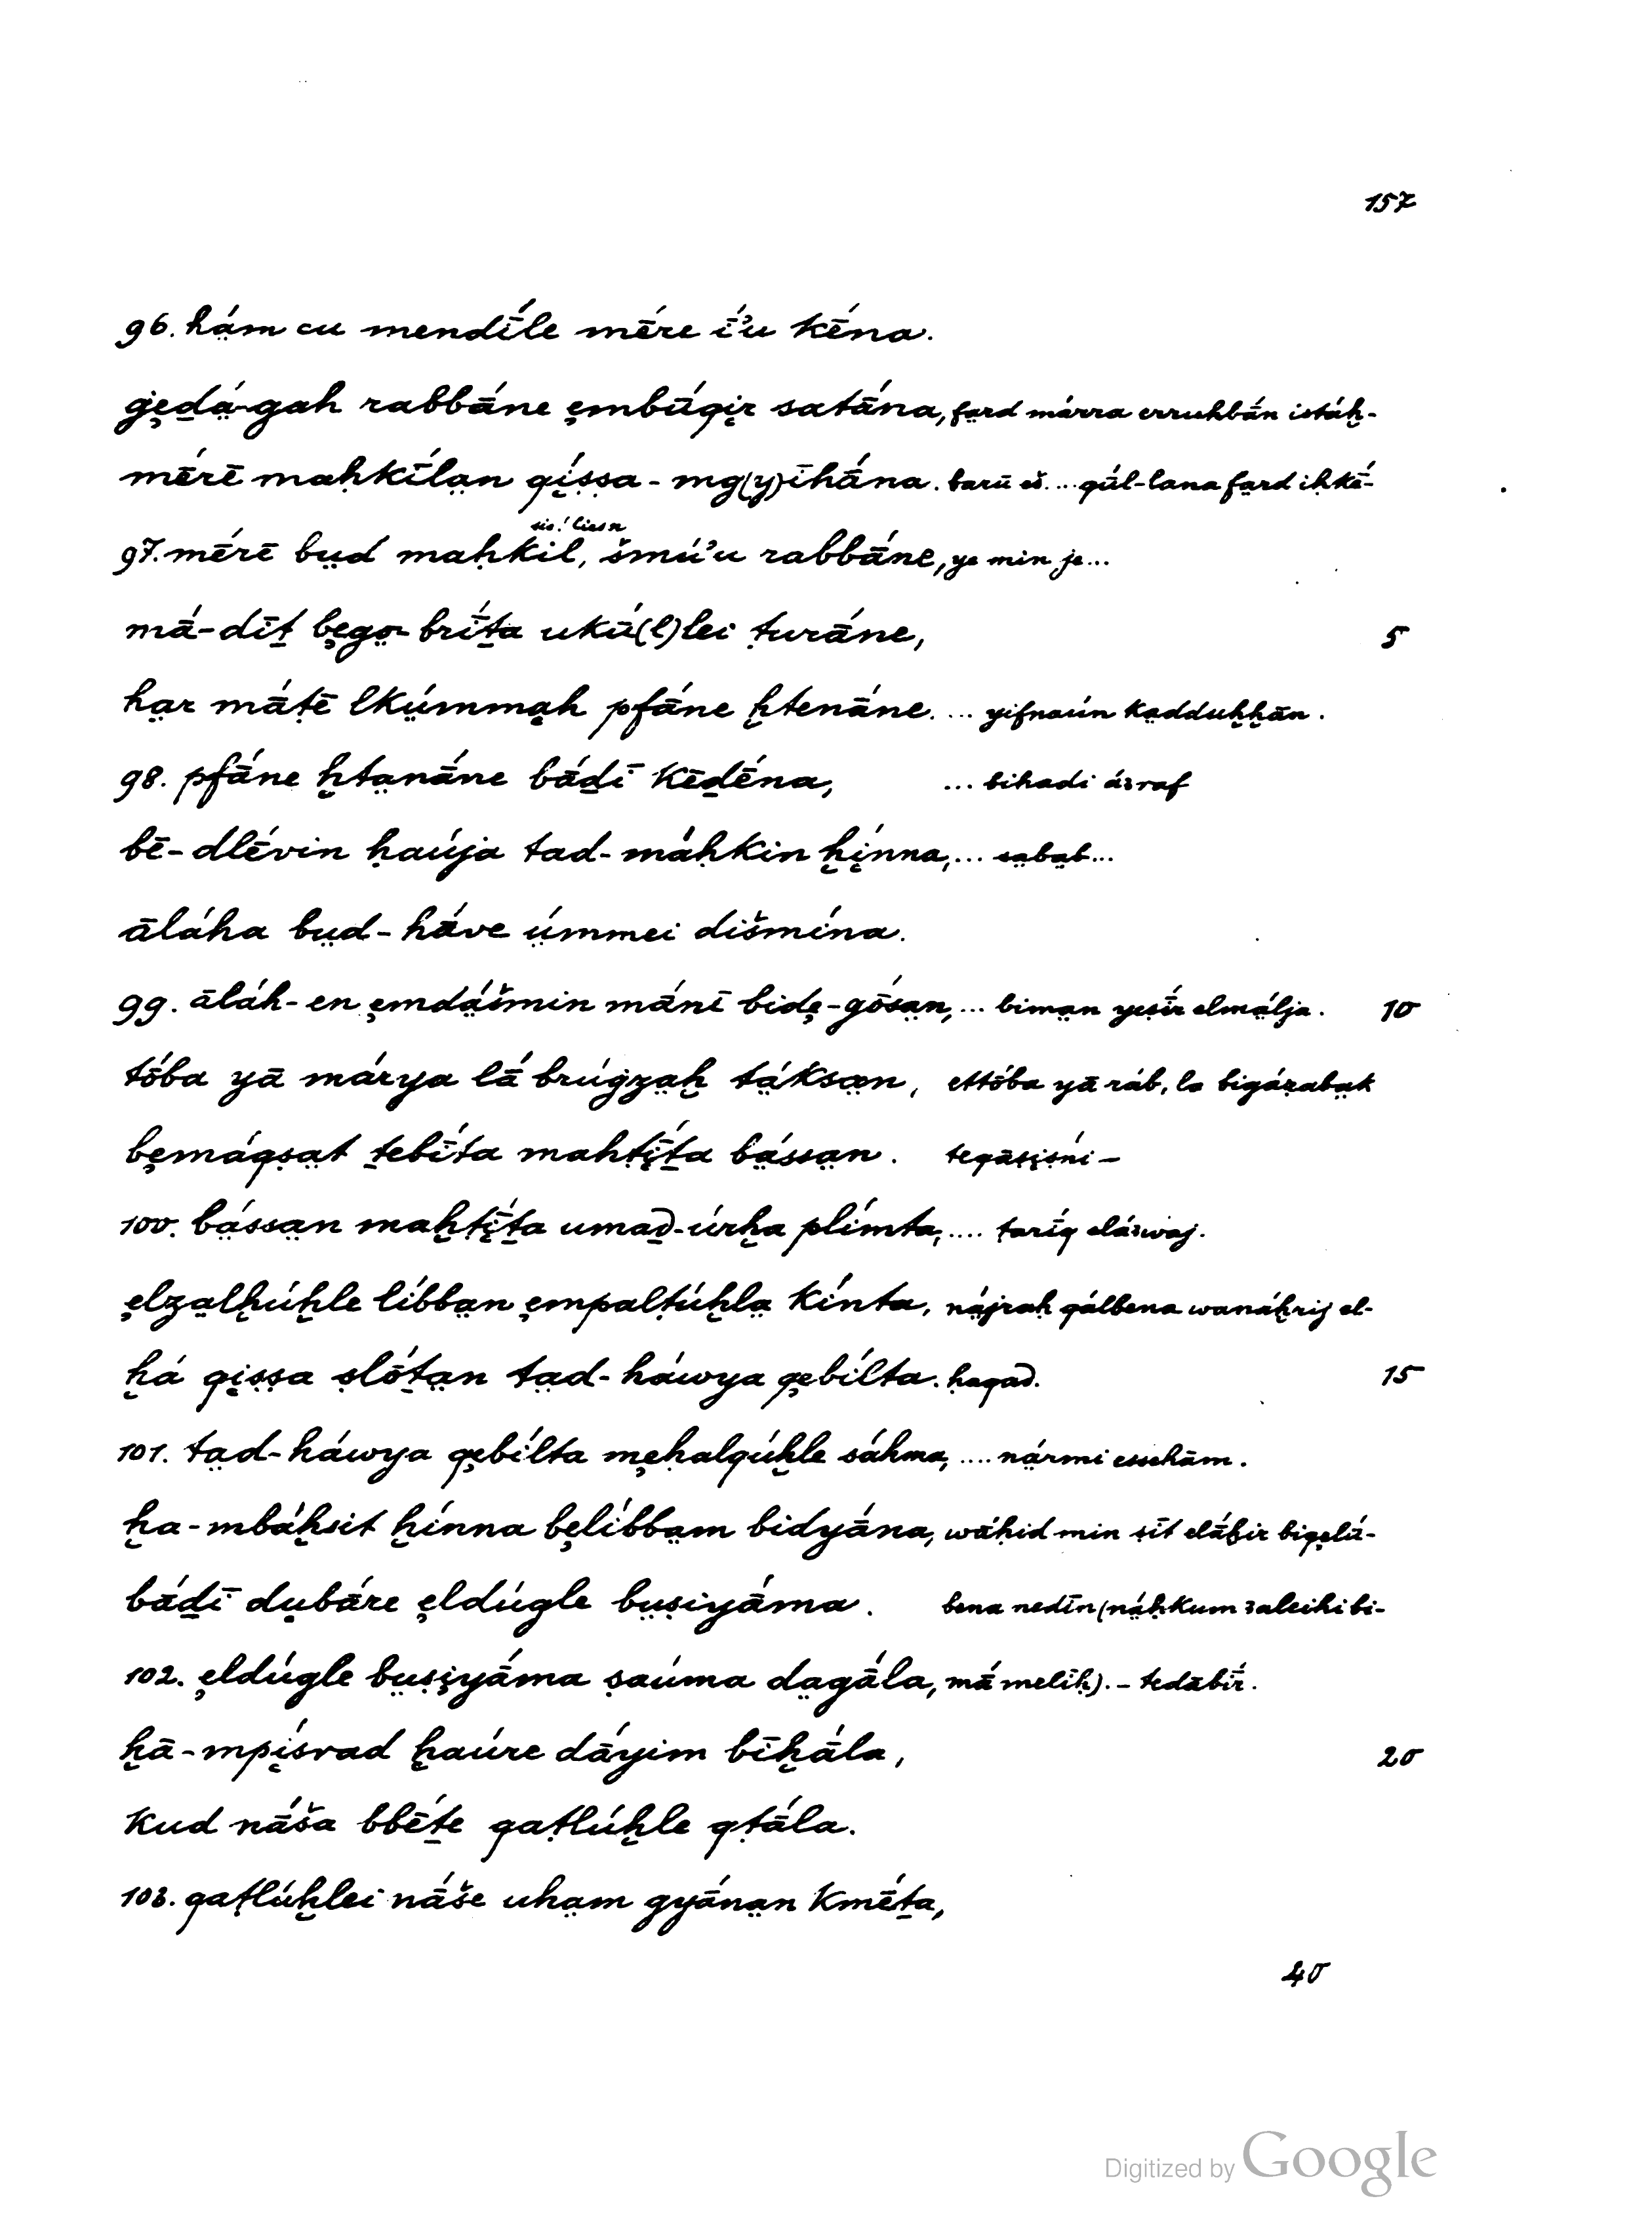 157
96. hä́m cu mendī́le mḗre ī́'u kḗna.
ġȩḏä́-gah rabbā́ne ȩmbū́qi̧r satā́na, färd márra erruhbā́n istáḫ-
mḗrē maḥkī́län qí̧ṣṣa - mg(y)īhā́na. barū eš.... qúl-lana färd iḥkē-
sic! lies n
97. mḗrē büd maḥkil, šmú'u rabbā́ne, ye min je...
mā́-dīṯ bȩgo-brī́ṯa ukū́(l)lei ṭurā́ne, 5
här mā́ṭē lkǘmmäh pfā́ne ḫtenā́ne. ... yifnaún kädduḫḫān.
98. pfā́ne ḫtänā́ne bā́ḏī kēḏḗna, ... bihadi áʒraf
bē-dlḗvin ḥaúja tad-mā́ḥkin ḫí̧nna, ... säbäb...
ālā́ha büd-hā́ve ǘmmei dišmína.
99. ālā́h-en ȩmdä́šmin mā́nī bidȩ-gṓsän, ... bimän yeṣī́r elmä́lja. 10
tṓba yā márya lā́ brúġzäḫ tä́ksän, ettṓba yā ráb, la bigáẓabäk
bȩmáqṣät ṯebī́ta mahṭī̧́ṯa bä́ssän. teqāṣi̧ṣní -
100. bä́ssän maḫṭī̧́ṯa umaḏ-úrḫa plímta, .... ṭarīq eláʒwaj.
ȩlzälḫúḫle líbbän ȩmpalṭúḫlä kínta, nä́jraḥ qálbena wanáḫrij el-
ḫá qi̧ṣṣa ṣlṓṯän täd-háwya qȩbílta. ḥaqad. 15
101. täd-háwya qȩbílta mȩḥalqúḫle sáhma, .... nä́rmi essehām.
ḫa-mbáḫsit ḫínna bȩlíbbäm bidyā́na, wāḥid min ṣīt elā́bir biqȩlū́-
bā́ḏī dübāre ȩldúgle büṣiyā́ma. bena nedīn (nä́ḥkum ʒaleihi bi-
102. ȩldúgle büṣi̧yā́ma ṣaúma dägā́la, mā́ melīḥ). - tedābī́r.
ḫā-mpí̧srad ḫaúre dā́yim bīḫā́la, 20
kud nā́ša bbḗṯe qaṭlúḫle qṭā́la.
103. qaṭlúḫlei nā́še uhäm gyā́nän kmḗṯa,
40
Digitized by Google